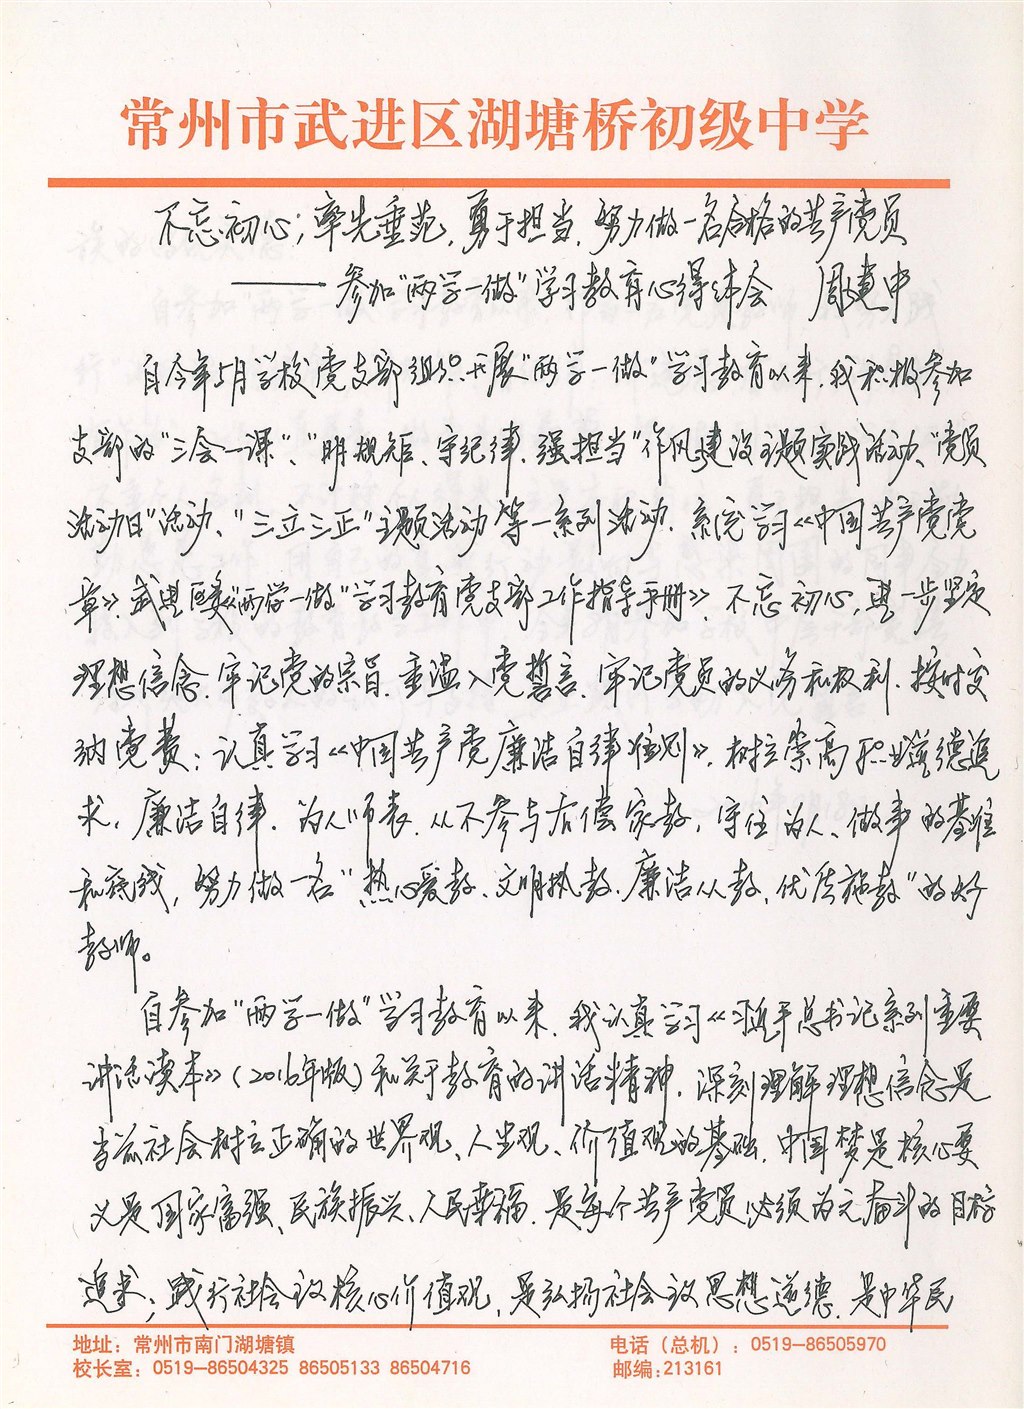 常州市武进区湖塘桥初级中学
不忘初心；率先垂范，勇于担当，努力做一名合格的共产党员
——参加"两学一做"学习教育心得体会 周建中
自今年5月学校党支部组织开展"两学一做"学习教育以来，我积极参加
支部的"三会一课"、"明规矩、守纪律、强担当"作风建设主题实践活动、"党员
活动日"活动、"三立三正"主题活动等一系列活动，系统学习《中国共产党党
章》、武进区委《"两学一做"学习教育党支部工作指导手册》，不忘初心，进一步坚定
理想信念，牢记党的宗旨，重温入党誓言，牢记党员的义务和权利，按时交
纳党费；认真学习《中国共产党廉洁自律准则》，树立崇高职业道德追
求，廉洁自律，为人师表，从不参与有偿家教，守住为人、做事的基准
和底线，努力做一名"热心爱教、文明执教、廉洁从教、优质施教"的好
教师。
自参加"两学一做"学习教育以来，我认真学习《习近平总书记系列重要
讲话读本》（2016年版）和关于教育的讲话精神，深刻理解理想信念是
当前社会树立正确的世界观、人生观、价值观的基础，中国梦是核心要
义是国家富强、民族振兴、人民幸福，是每个共产党员必须为之奋斗的目标
追求；践行社会主义核心价值观，是弘扬社会主义思想道德，是中华民
地址：常州市南门湖塘镇 电话（总机）：0519—86505970
校长室：0519—86504325 86505133 86504716 邮编：213161